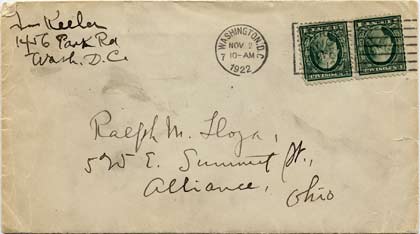 Keeler
1456 Park Rd
Wash. D.C.
WASHINGTON, D.C.
NOV 2
7 10-AM
1922
Ralph M.
525 E. Summit St.,
Alliance,
Ohio